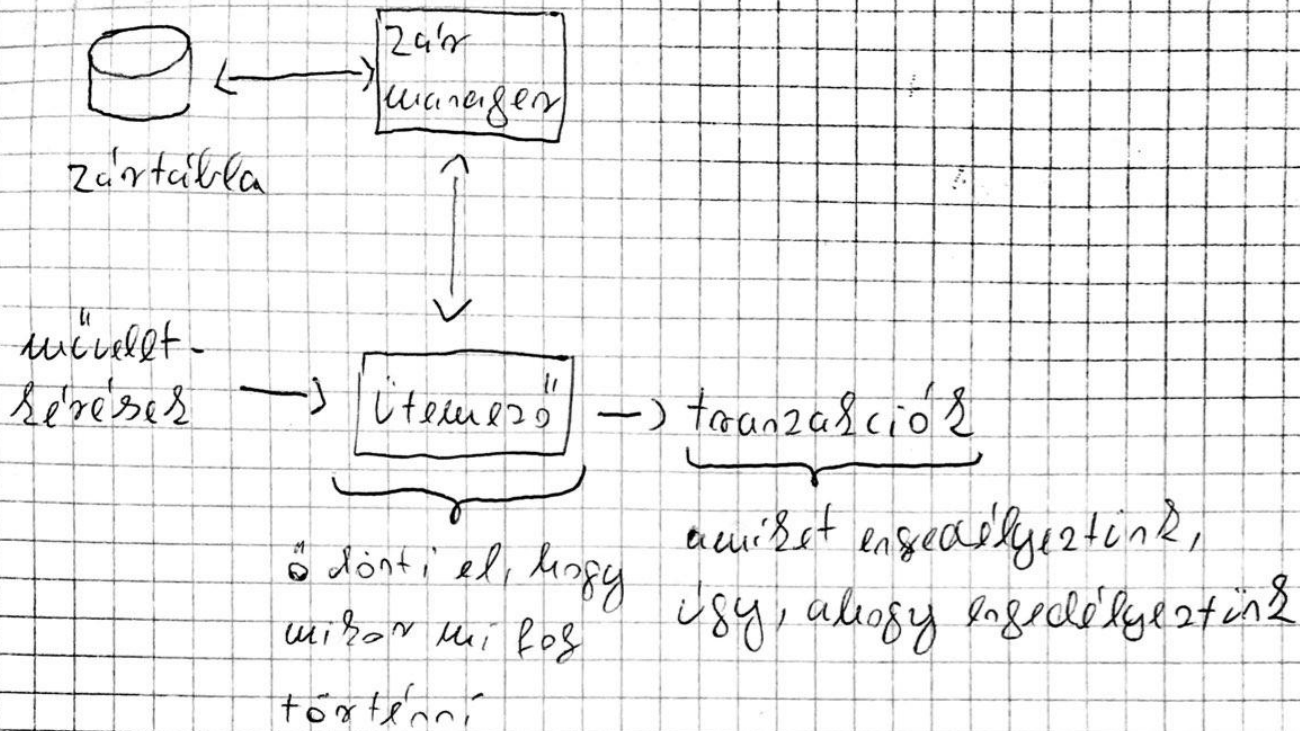 zár
manager
zártábla
művelet-
kérések
ütemező
tranzakciók
ő dönti el, hogy
mikor mi fog
történni
amiket engedélyeztünk,
úgy, ahogy engedélyeztünk